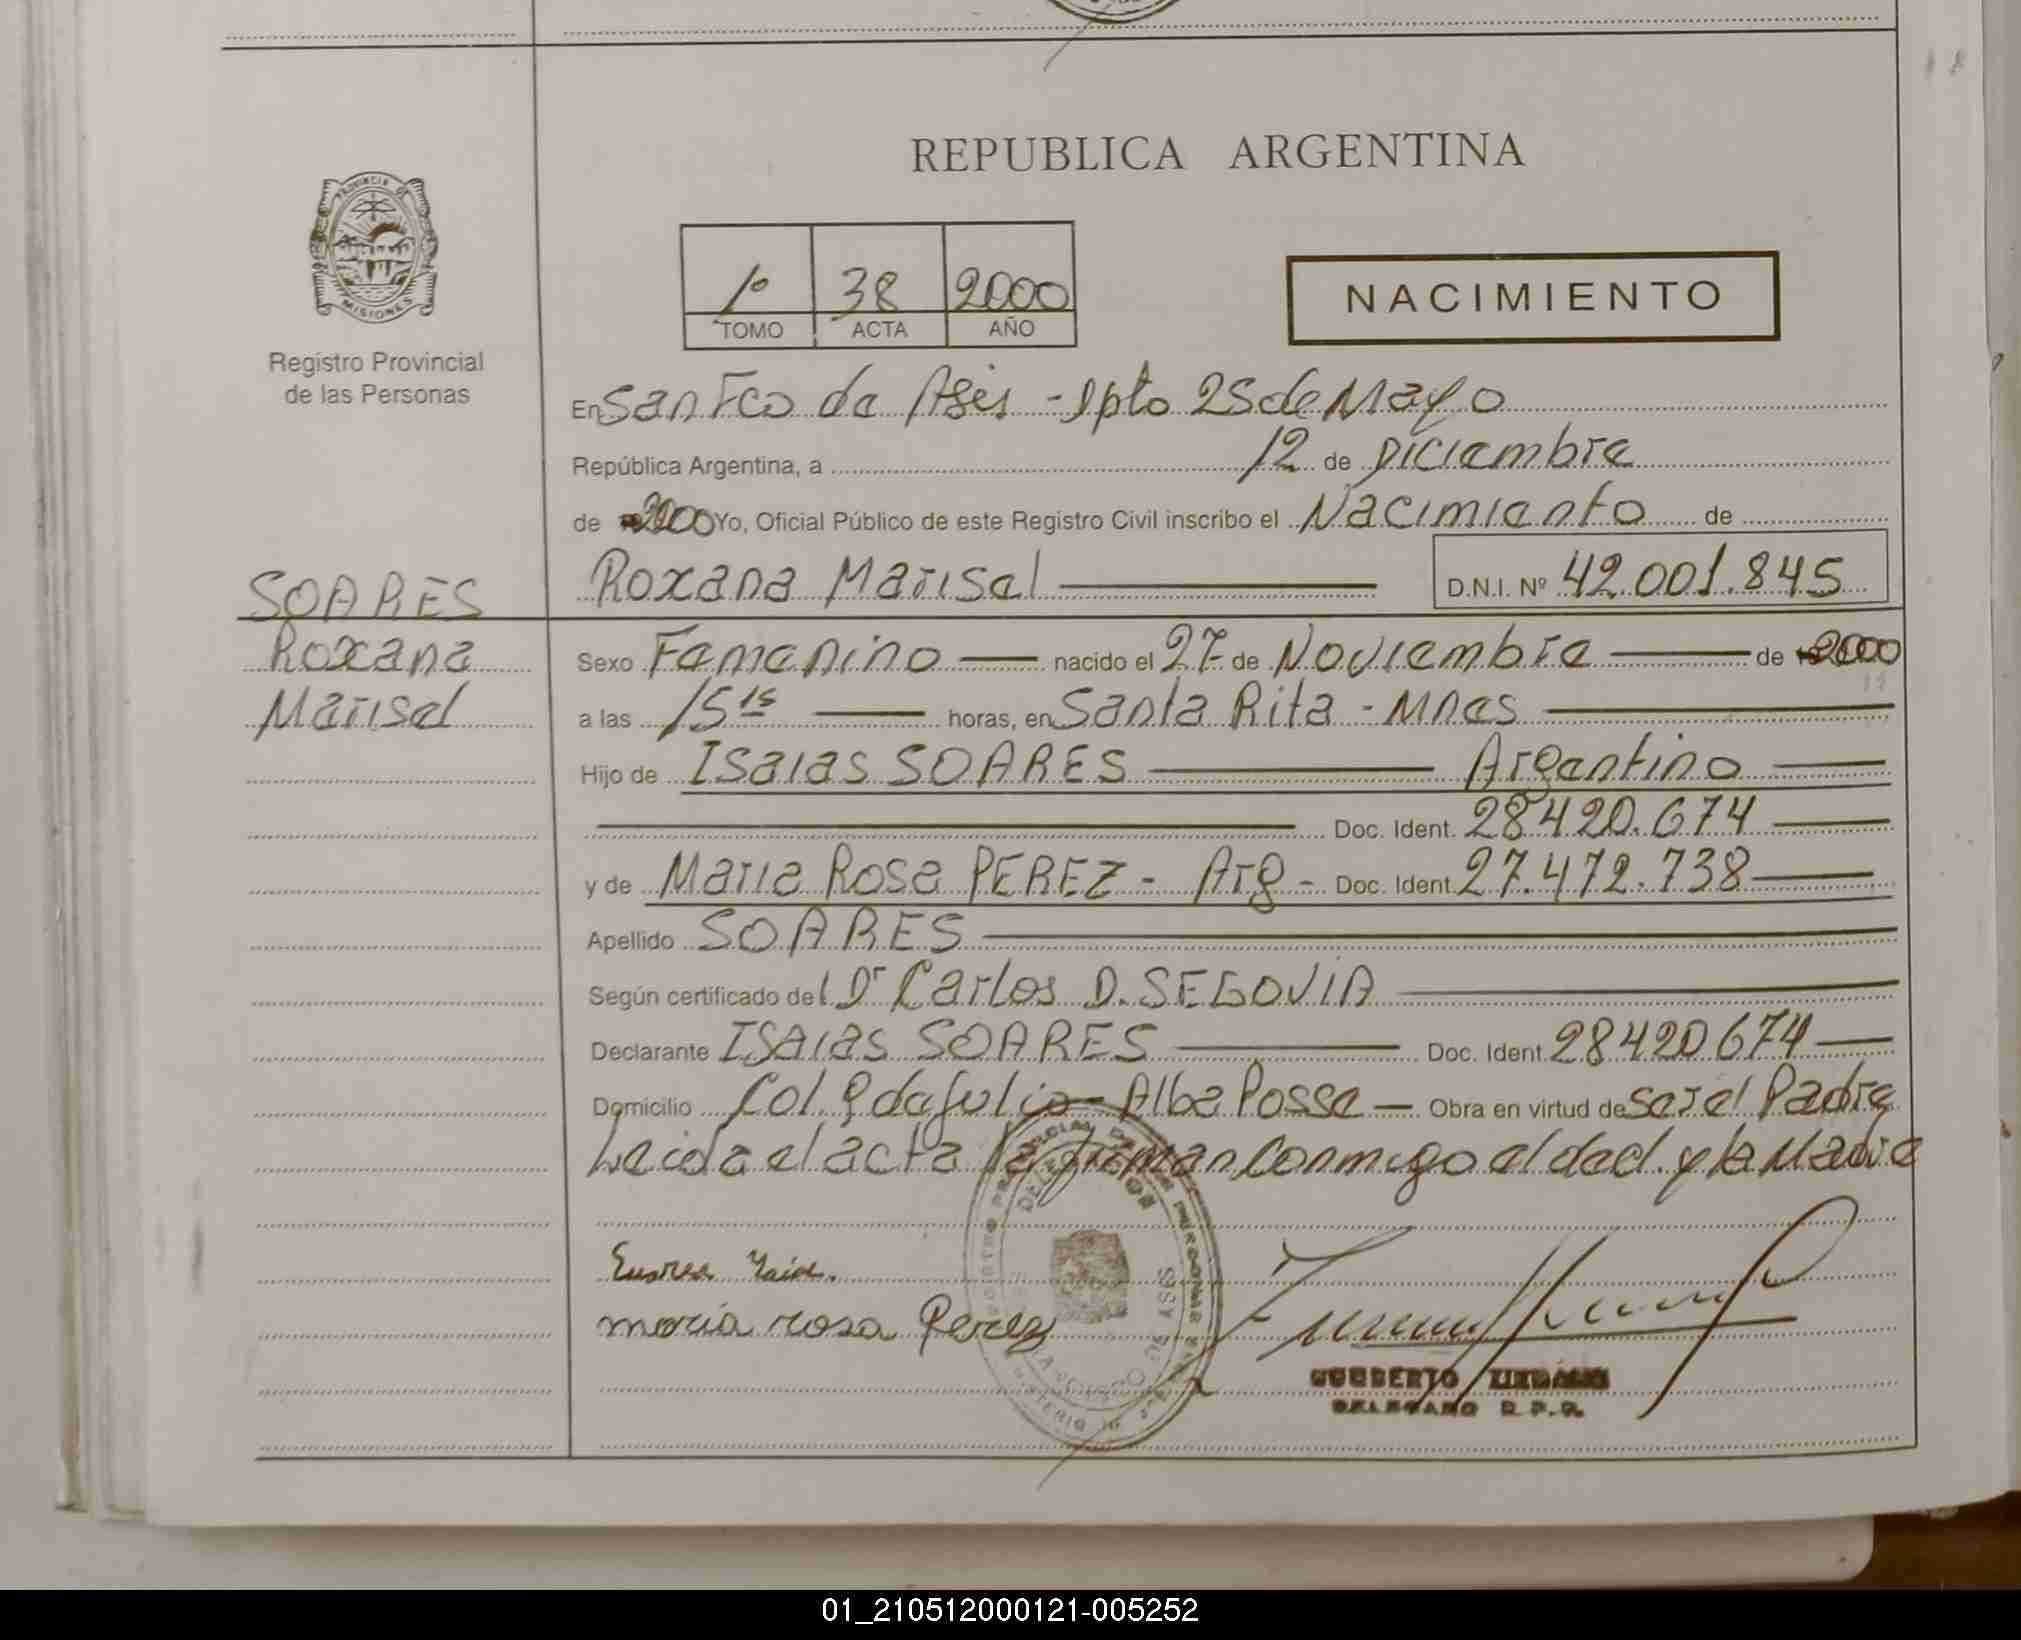 REPUBLICA ARGENTINA
PROVINCIA DE MISIONES
Registro Provincial
de las Personas
1º 38 2000
TOMO ACTA AÑO
NACIMIENTO
En San Fco de Asis - Dpto 25 de Mayo
República Argentina, a 12 de Diciembre
de 2000 Yo, Oficial Público de este Registro Civil inscribo el Nacimiento de
Roxana Marisel D.N.I. Nº 42.001.845
SOARES
Roxana
Marisel
Sexo Femenino nacido el 27 de Noviembre de 2000
a las 15 15 horas, en Santa Rita - Mnes
Hijo de Isaias SOARES Argentino
Doc. Ident. 28420.674
y de Maria Rosa PEREZ - Arg - Doc. Ident. 27.472.738
Apellido SOARES
Según certificado del Dr Carlos D. SEGOVIA
Declarante Isaias SOARES Doc. Ident. 28420674
Domicilio Col. - Alba Posse Obra en virtud de ser el Padre
Leida el acta la firman Conmigo el decl. y la Madre
maria rosa Perez
DELEGADO R.P.P.
01_210512000121-005252